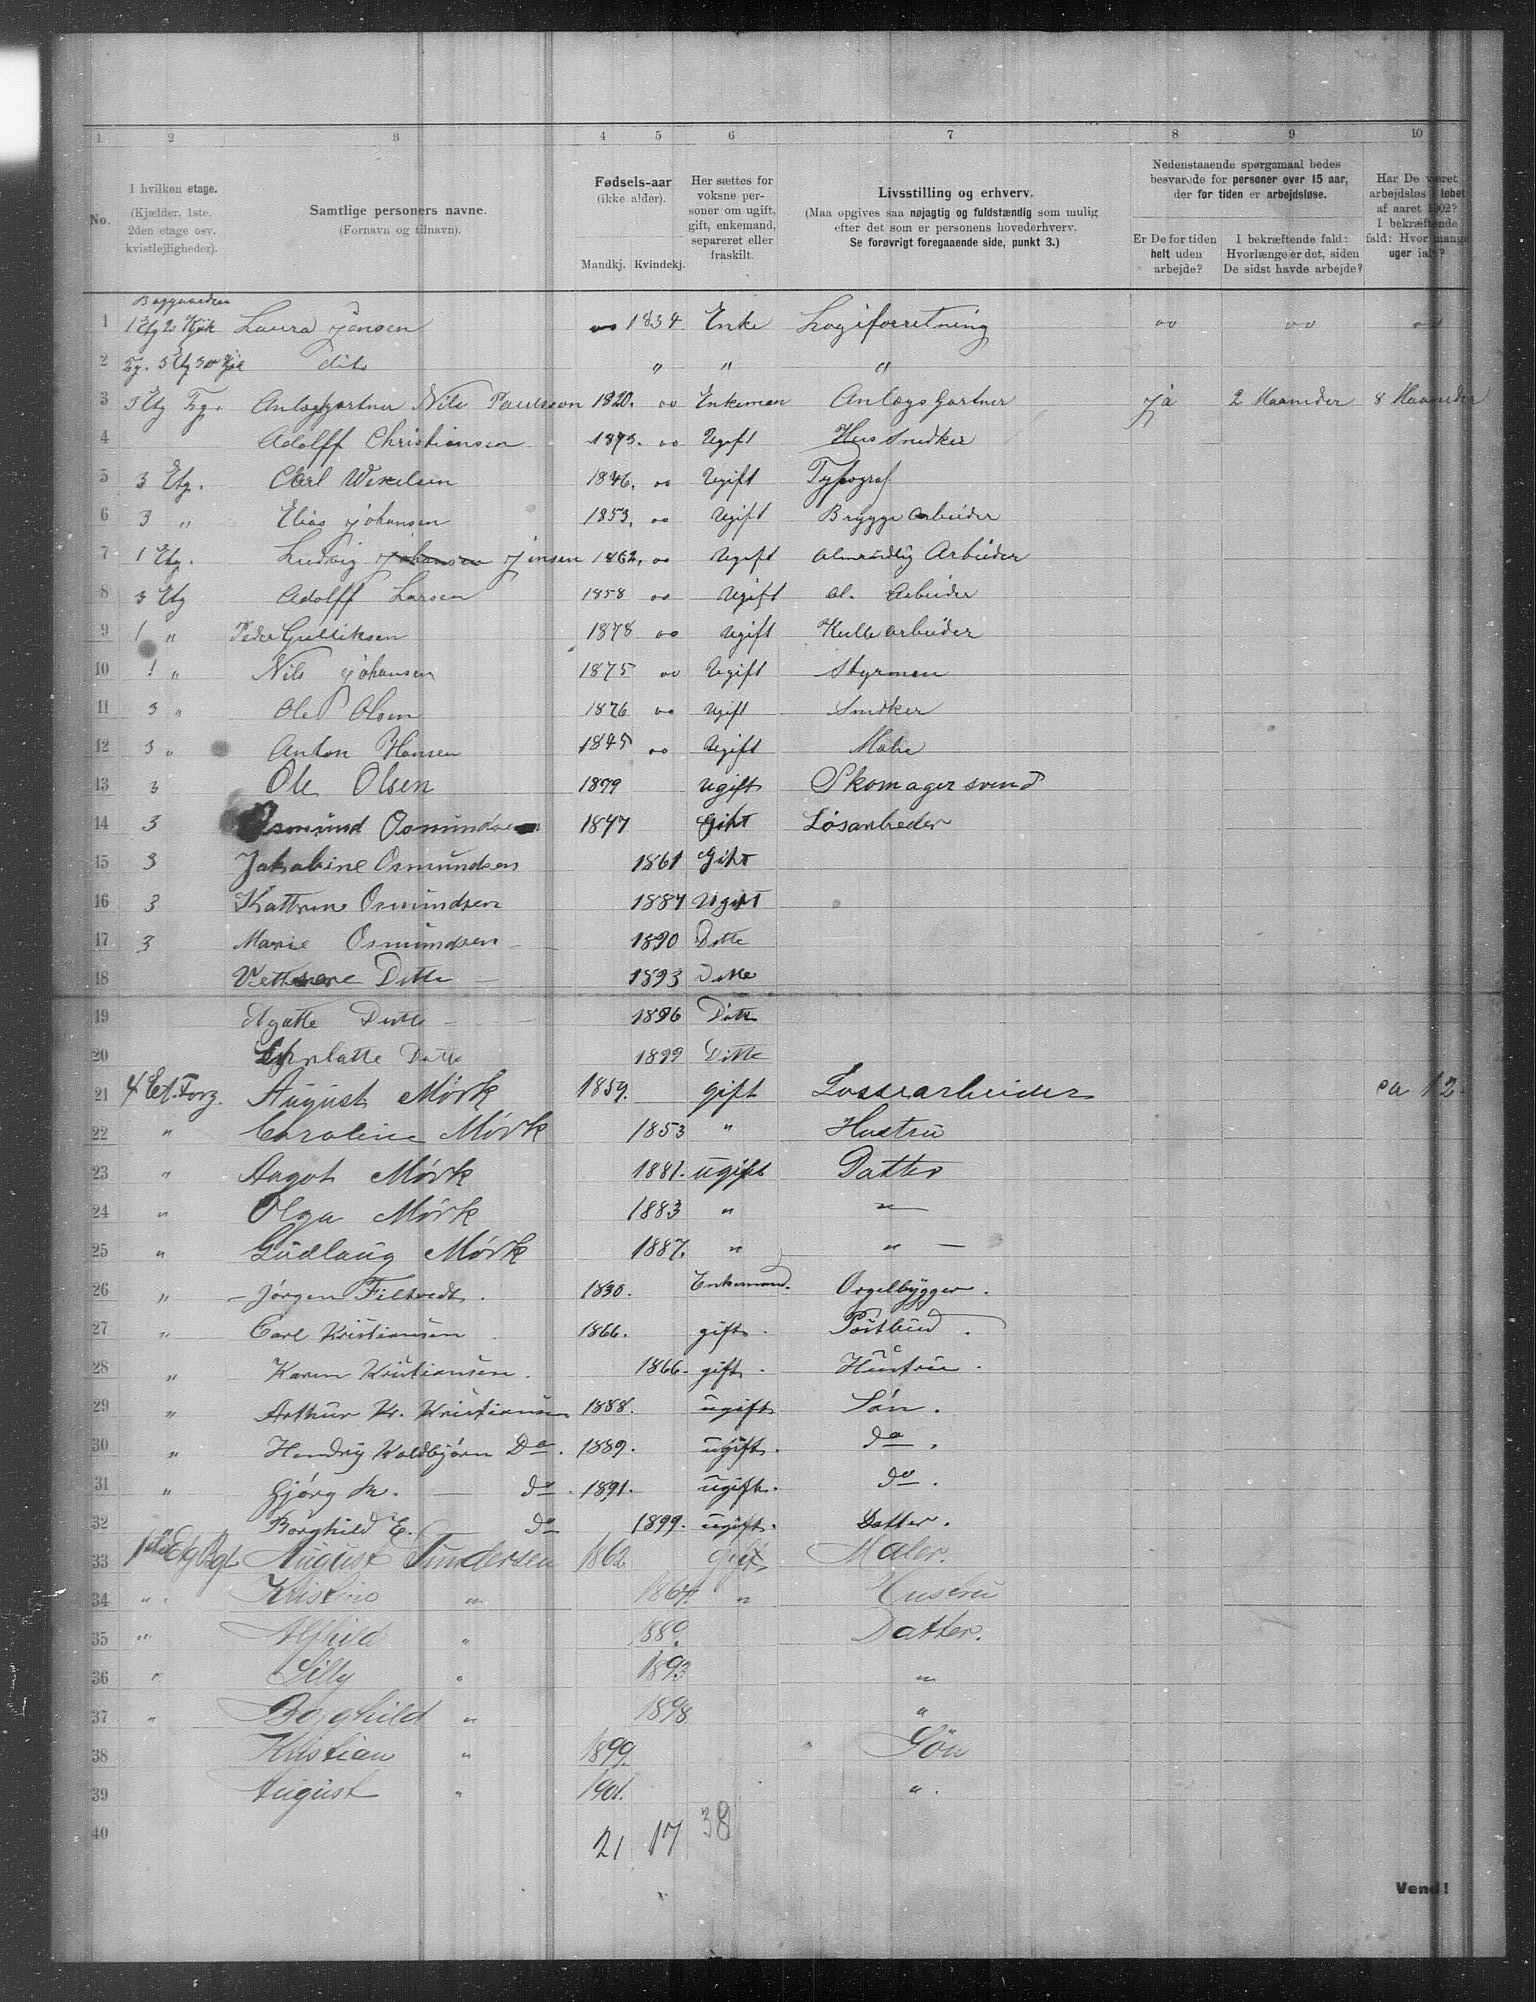 1 2 3 4 5 6 7 8 9 10
No.
I hvilken etage.
(Kjælder, 1ste, 2den etage osv. kvistlejligheder).
Samtlige personers navne.
(Fornavn og tilnavn).
Fødsels-aar
(ikke alder).
Mandkj. Kvindekj.
Her sættes for voksne personer om ugift, gift, enkemand, separeret eller fraskilt.
Livsstilling og erhverv.
(Maa opgives saa nøjagtig og fuldstændig som mulig efter det som er personens hovederhverv. Se forøvrigt foregaaende side, punkt 3.)
Nedenstaaende spørgsmaal bedes besvarede for personer over 15 aar, der for tiden er arbejdsløse.
Er De for tiden helt uden arbejde?
I bekræftende fald: Hvorlænge er det, siden De sidst havde arbejde?
Har De været arbejdsløs i løbet af aaret 1902? I bekræftende fald: Hvor mange uger ialt?
Baggaarden
1 1 Etg 2 Kjøk Laura Jansen 1834 Enke Logiforretning
2 dito " " "
3 3 Etg Anlægsgartner Nils Paulsson 1820. Enkeman Anlægs Gartner ja 2 Maaneder 8 Maaneder
4 Adolff Christiansen 1873. Ugift Hus Snedker
5 3 Etg. Carl 1846. Ugift Typograf
6 3 " Elias Johansen 1853. Ugift Brygge arbeider
7 1 Etg. Ludvig Johansen Jensen 1862. Ugift Arbeider
8 3 Etg Adolff Larsen 1858 Ugift al. Arbeider
9 1 " Peder Gulliksen 1878 Ugift Kullearbeider
10 1 " Nils Johansen 1875 Ugift Styrman
11 3 " Ole Olsen 1876 Ugift Snedker
12 3 " Anton Hansen 1845 Ugift
13 3 Ole Olsen 1879 Ugift Skomagersvend
14 3 Osmund Osmundsen 1847 Gift Løsarbeder
15 3 Jakobine Osmundsen 1861 Gift
16 3 Kattrine Osmundsen 1887 Ugift
17 3 Marie Osmundsen 1890 Ditte
18 Ditte 1893 Ditte
19 Agatte Ditte 1896 Ditte
20 Ditte 1899 Ditte
21 4 Et. Forg. August Mörk 1859. gift Lossearbeider ca 12.
22 " Caroline Mörk 1853 " Hustru
23 " Aagot Mörk 1881. ugift Datter
24 " Olga Mörk 1883 " "
25 " Gudlaug Mörk 1887. " "
26 " Jørgen Filtvedt. 1830. Enkemand. Orgelbygger.
27 " Carl Kristiansen 1866. gift. Postbud.
28 " Karen Kristiansen. 1866. gift. Hustru.
29 " Arthur Kr. Kristiansen 1888. ugift Søn.
30 " Hendrij Koldbjørn Do. 1889. ugift. do.
31 " Gjørg M. do. 1891. ugift. do.
32 Borghild E. do 1899. ugift. Datter.
33 1ste Etg Bgt August Gundersen 1862 gift Maler.
34 " Kristine " 1864. " Hustru
35 " Alfhild " 1889. Datter.
36 " Lilly " 1893 "
37 " Borghild " 1898 "
38 Kristian " 1899. Søn
39 August " 1901. "
40
21 17 38
Vend!